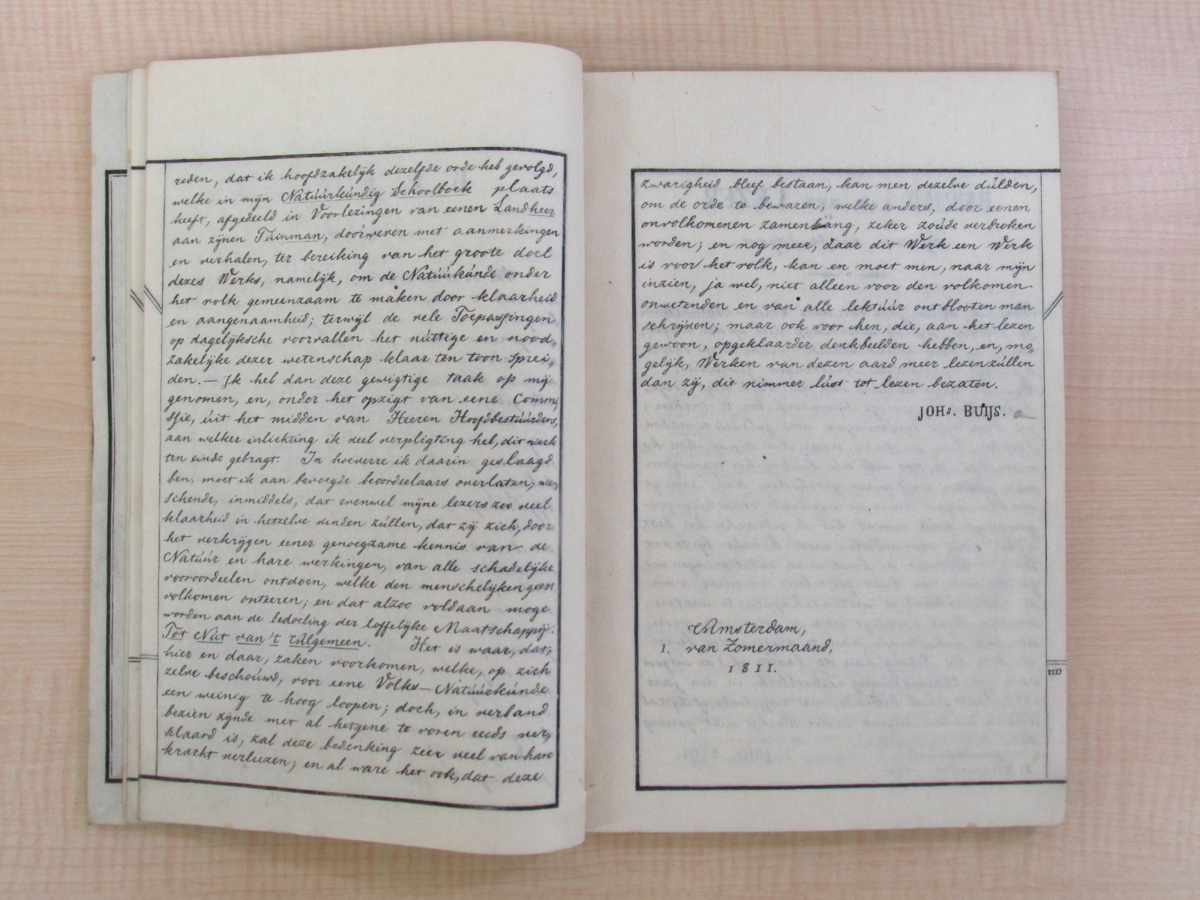 reden, dat ik hoofdzakelijk dezelfde orde heb gevolgd,
welke in mijn Natúúrkúndig Schoolboek plaats
heeft, afgedeeld in Voorlezingen van eenen Landheer
aan zijnen Túinman, doorweven met aanmerkingen
en verhalen, ter bereiking van het groote doel
dezes Werks, namelijk, om de Natúúrkúnde onder
het volk gemeenzaam te maken door klaarheid
en aangenaamheid; terwijl de vele Toepassingen
op dagelijksche voorvallen het núttige en nood„
zakelijke dezer wetenschap klaar ten toon sprei„
den. — Ik heb dan deze gewigtige taak op mij
genomen, en, onder het opzigt van eene Commi
ssjie, úit het midden van Heeren Hoofdbestúúrders,
aan welker inlichting ik veel verpligting heb, dit werk
ten einde gebragt. In hoeverre ik daarin geslaagd
ben, moet ik aan bevoegde beoordeelaars overlaten, wen
schende, inmiddels, dat evenwel mijne lezers zoo veel
klaarheid in hetzelve vinden zúllen, dat zij zich, door
het verkrijgen eener genoegzame kennis van de
Natúúr en hare werkingen, van alle schadelijke
vooroordeelen ontdoen, welke den menschelijken geest
volkomen onteeren; en dat alzoo voldaan moge
worden aan de bedoeling der loffelijke Maatschappij:
Tot Nút van 't Algemeen. Het is waar, dat,
hier en daar, zaken voorkomen, welke, op zich
zelve beschoúwd, voor eene Volks — Natúúrkúnde
een weinig te hoog loopen; doch, in verband
bezien zijnde met al hetgene te voren reeds ver„
klaard is, zal deze bedenking zeer veel van hare
kracht verliezen; en al ware het ook, dat deze
zwarigheid bleef bestaan, kan men dezelve dúlden,
om de orde te bewaren, welke anders, door eenen
onvolkomenen zamenhang, zeker zoúde verbroken
worden; en nog meer, daar dit Werk een Werk
is voor het volk, kan en moet men, naar mijn
inzien, ja wel, niet alleen voor den volkomen
onwetenden en van alle lektúúr ontblooten man
schrijven; maar ook voor hen, die, aan het lezen
gewoon, opgeklaarder denkbeelden hebben, en, mo„
gelijk, Werken van dezen aard meer lezen zúllen
dan zij, die nimmer lúst tot lezen bezaten.
JOHs. BUIJS.
Amsterdam,
1. van Zomermaand,
1811.